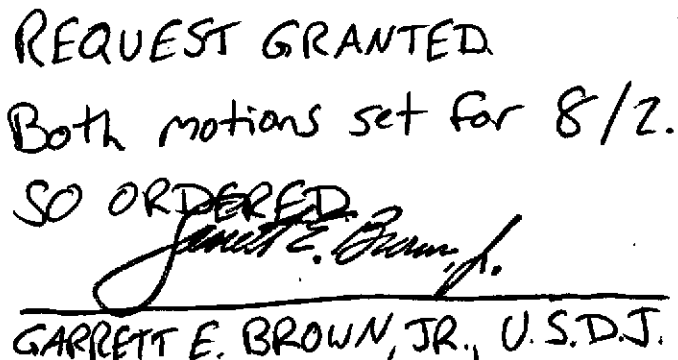 REQUEST GRANTED.
Both motions set for 8/2.
SO ORDERED.
Garrett E. Brown, Jr.
GARRETT E. BROWN, JR., U.S.D.J.